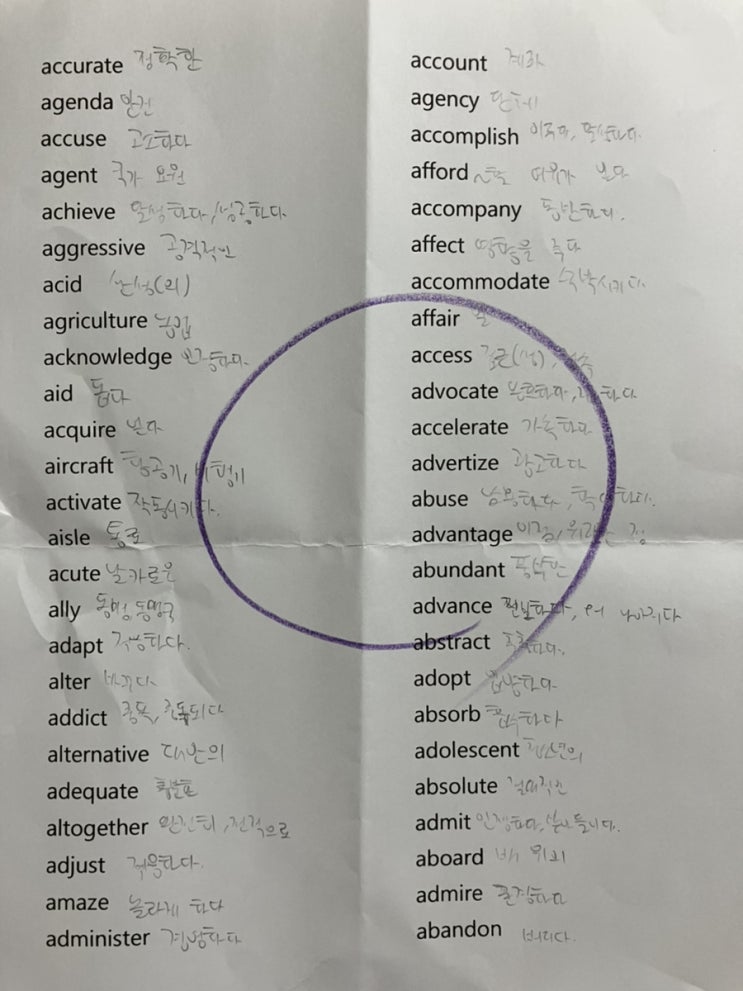 accurate 정확한
agenda 안건
accuse 고소하다
agent 국가 요원
achieve 달성하다/성공하다.
aggressive 공격적인
acid 산성(의)
agriculture 농업
acknowledge 인정하다.
aid 돕다
acquire 얻다
aircraft 항공기, 비행기
activate 작동시키다.
aisle 통로
acute 날카로운
ally 동맹, 동맹국
adapt 적응하다.
alter 바꾸다
addict 중독, 중독되다
alternative 대안의
adequate
altogether 완전히, 전적으로
adjust 적응하다.
amaze 놀라게 하다
administer 경영하다
account 계좌
agency 단체
accomplish 이루다, 달성하다.
afford ~할 여유가
accompany 동반하다.
affect 영향을 주다
accommodate 숙박시키다.
affair 일
access 접근(성), 접속
advocate
accelerate 가속하다
advertize 광고하다
abuse 남용하다, 학대하다.
advantage 이점,
abundant 풍부한
advance 나아지다
abstract 추출하다.
adopt 입양하다
absorb 흡수하다
adolescent 청소년의
absolute 절대적인
admit 인정하다, 받아들이다.
aboard 배 위의
admire 존경하다
abandon 버리다.